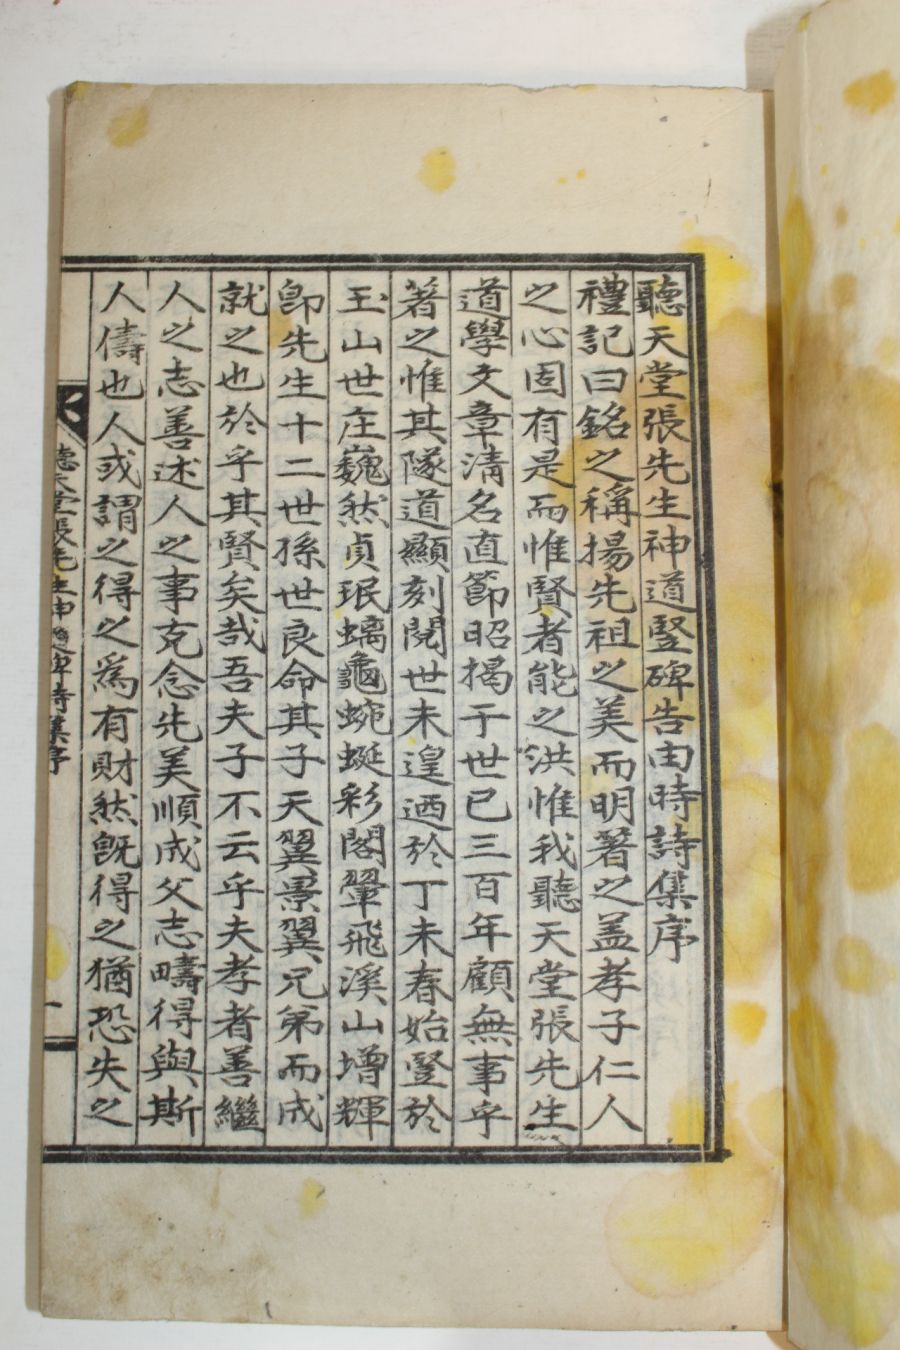 聽天堂張先生神道竪碑告由時詩集序
禮記曰銘之稱揚先祖之美而明著之盖孝子仁人
之心固有是而惟賢者能之洪惟我聽天堂張先生
道學文章清名直節昭揭于世已三百年顧無事乎
著之惟其隧道顯刻閱世未遑迺於丁未春始竪於
玉山世庄巍然貞珉螭龜蜿蜒彩閣翬飛溪山增輝
卽先生十二世孫世良命其子天翼景翼兄第而成
就之也於乎其賢矣哉吾夫子不云乎夫孝者善繼
人之志善述人之事克念先美順成父志疇得與斯
人儔也人或謂之得之爲有財然旣得之猶恐失之
聽天堂張先生神道碑詩集序
一